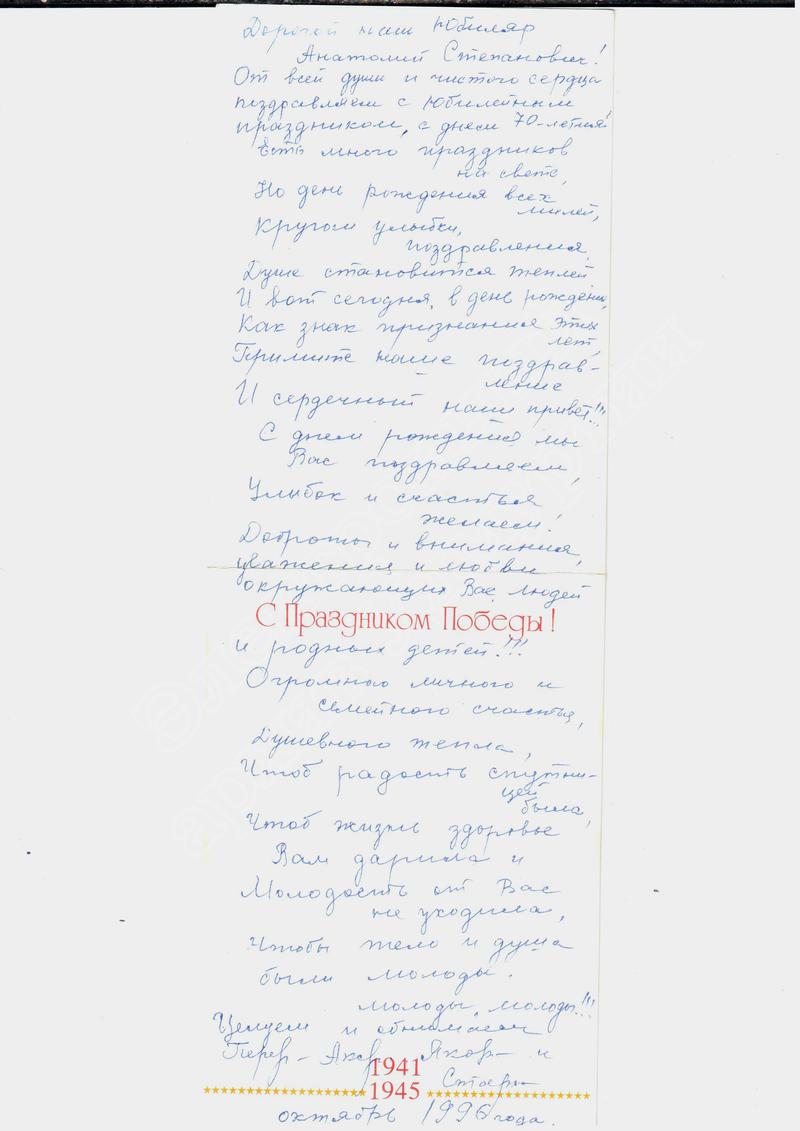 Дорогой наш Юбиляр
Анатолий Степанович!
От всей души и чистого сердца
поздравляем с Юбилейным
праздником, с днем 70-летия!
Есть много праздников
на свете,
Но день рождения всех
милей,
Кругом улыбки,
поздравления,
Душе становится теплей
И вот сегодня, в день рождения,
Как знак признания этих
лет,
Примите наше поздрав-
ление
И сердечный наш привет!!!
С днем рождения мы
Вас поздравляем,
Улыбок и счастья
желаем!
Доброты и внимания,
уважения и любви
окружающих Вас людей
С Праздником Победы!
и родных детей!!!
Огромного личного и
семейного счастья,
Душевного тепла,
Чтоб радость спутни-
цей
была,
Чтоб жизнь здоровье
Вам дарила и
Молодость от Вас
не уходила,
Чтобы тело и душа
были молоды.
молоды, молоды!!!
Целуем и обнимаем
и
1941
1945
октябрь 1996 года.